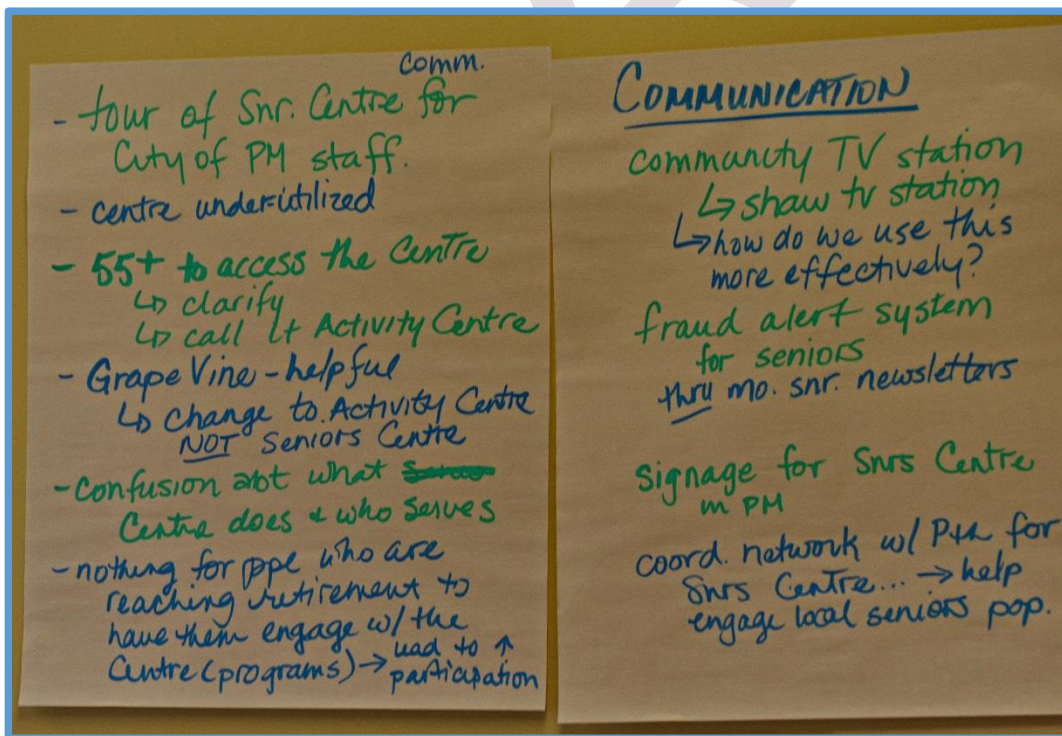 comm.
- tour of Snr. Centre for
City of PM staff.
- centre underutilized
- 55+ to access the Centre
↳ clarify
↳ call it Activity Centre
- Grape Vine - helpful
↳ change to Activity Centre
NOT Seniors Centre
- confusion abt what
Centre does & who serves
- nothing for ppl who are
reaching retirement to
have them engage w/ the
Centre (programs) → lead to ↑
participation
COMMUNICATION
community TV station
↳ shaw tv station
↳ how do we use this
more effectively?
fraud alert system
for seniors
thru mo. snr. newsletters
signage for Snrs Centre
in PM
coord. network w/ for
Snrs Centre... → help
engage local seniors pop.